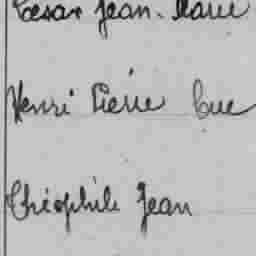 Cesar Jean-Marie
Henri Pierre Luc
Théophile Jean